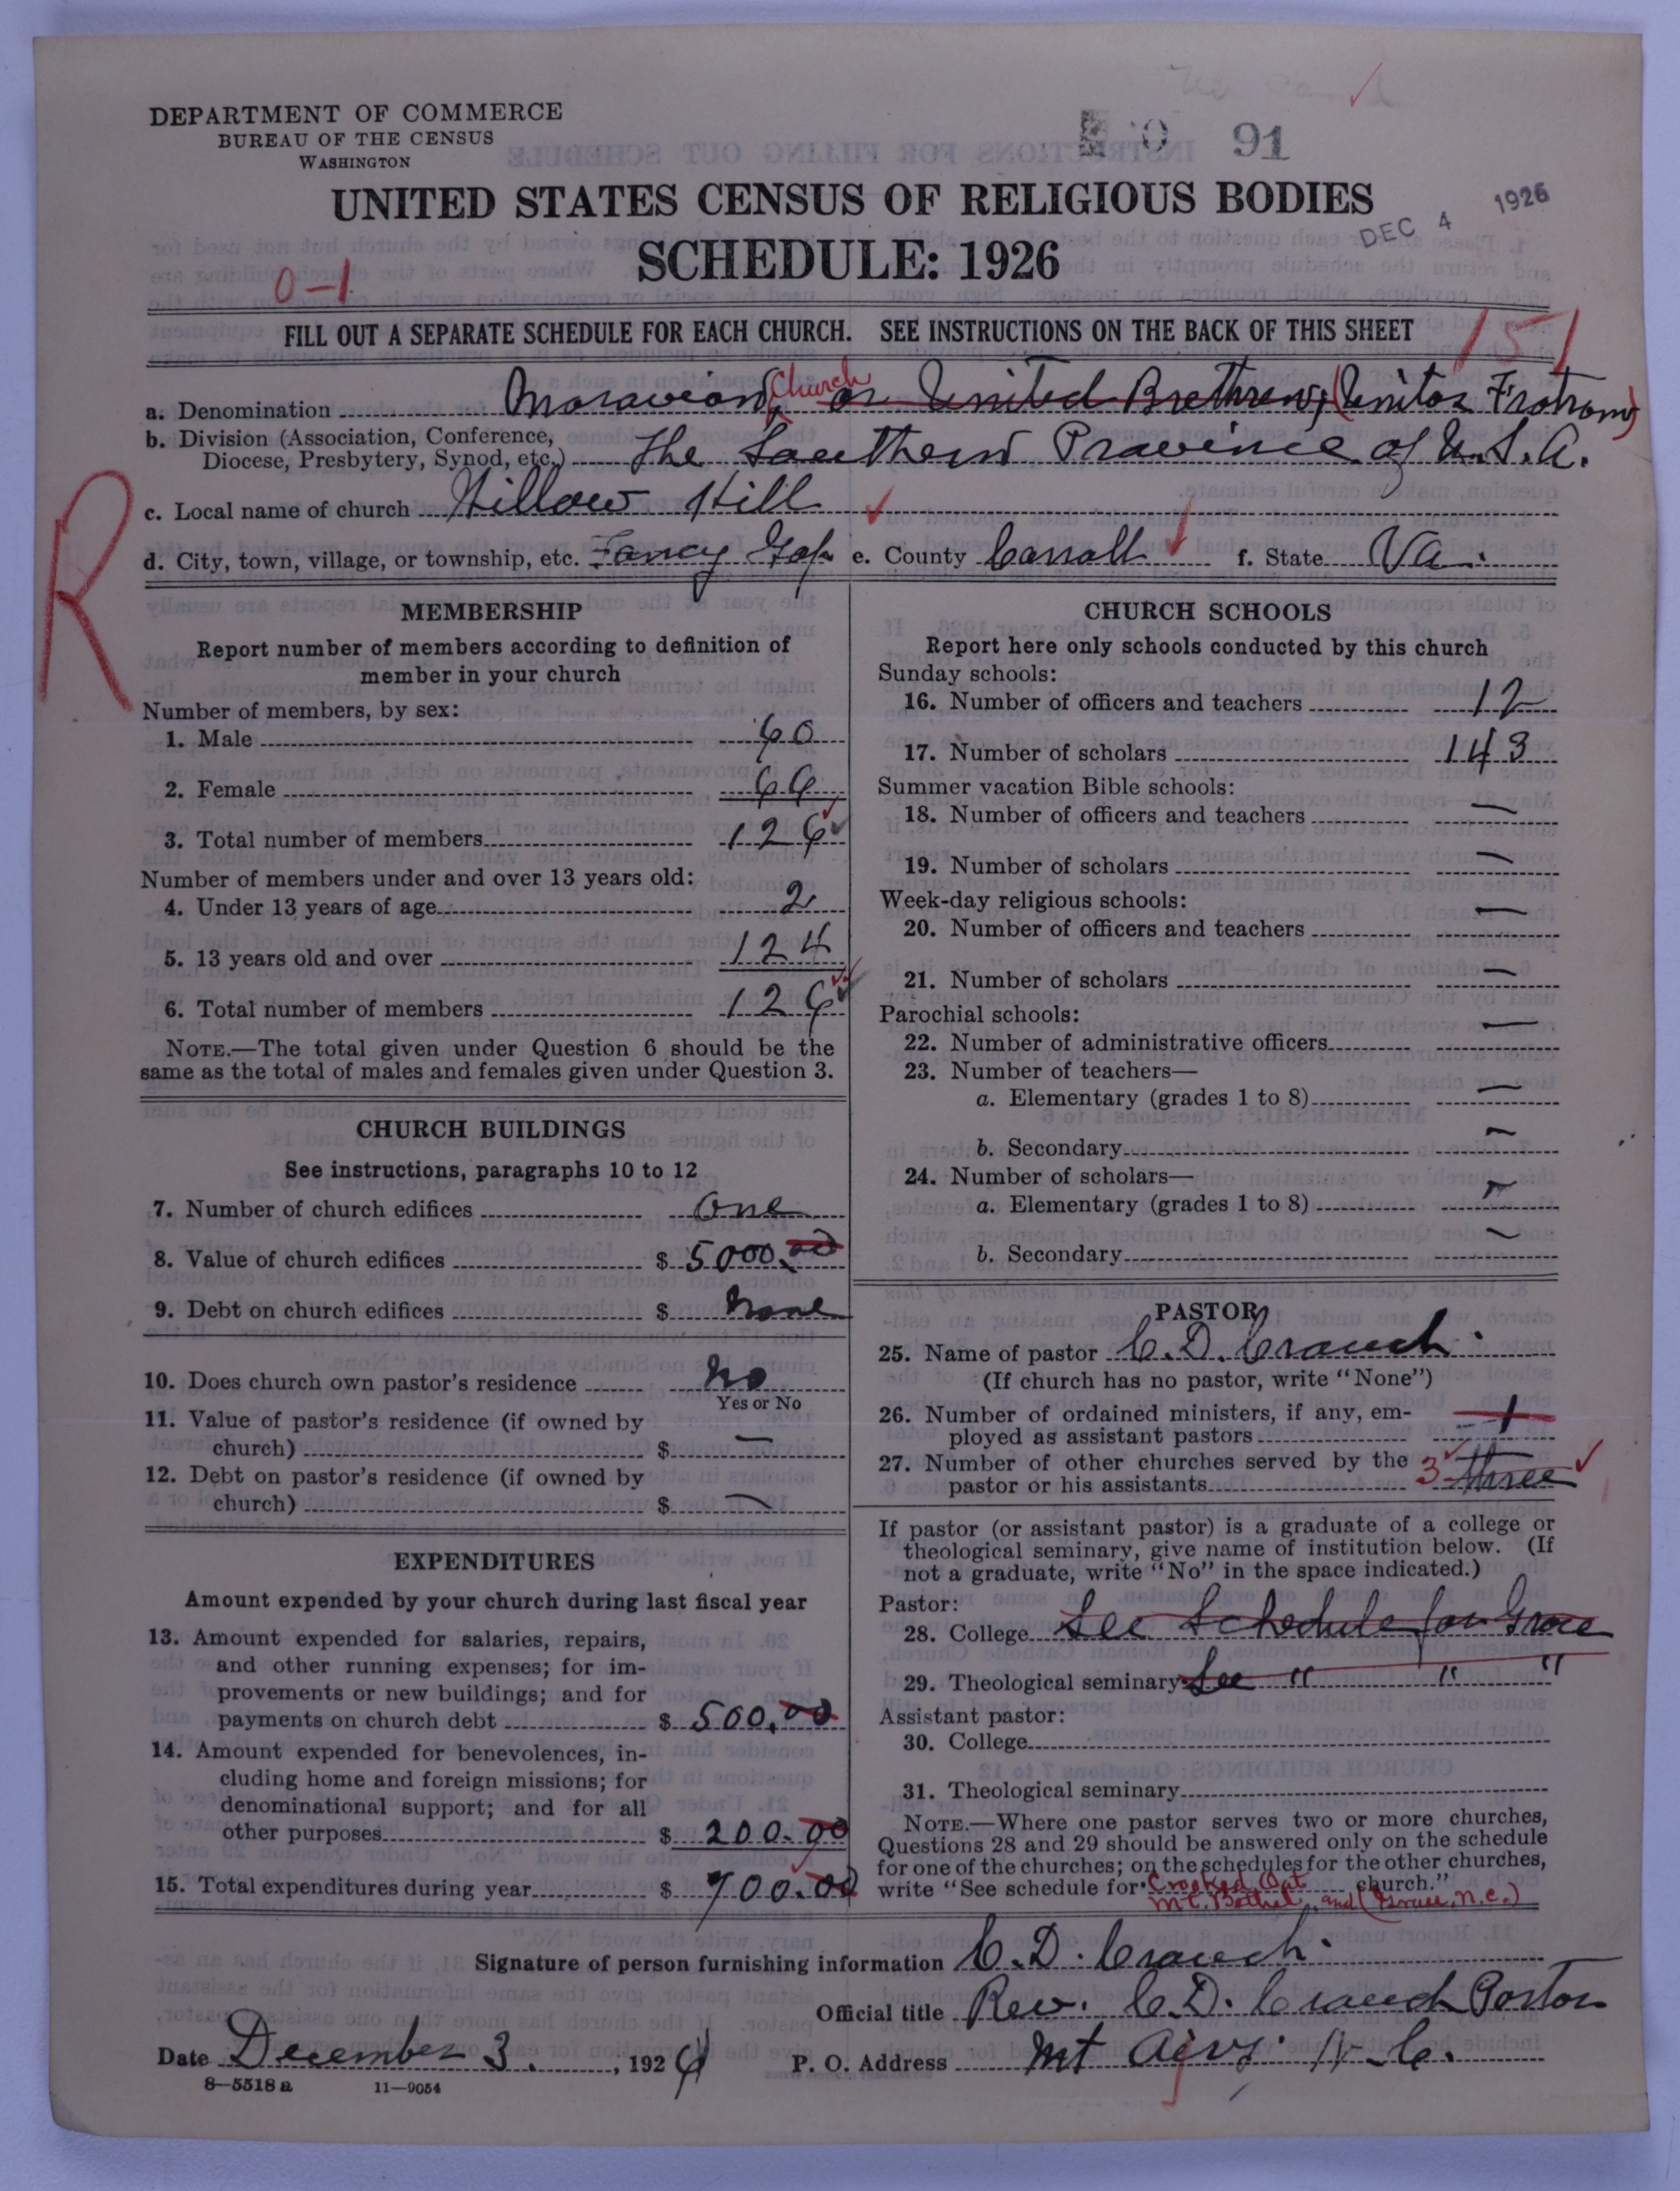 DEPARTMENT OF COMMERCE
BUREAU OF THE CENSUS
WASHINGTON
91
UNITED STATES CENSUS OF RELIGIOUS BODIES
DEC 4 1926
SCHEDULE: 1926
0-1
FILL OUT A SEPARATE SCHEDULE FOR EACH CHURCH. SEE INSTRUCTIONS ON THE BACK OF THIS SHEET
151
a. Denomination Moravian Church or United Brethren, (Unitas Fratrum)
b. Division (Association, Conference,
Diocese, Presbytery, Synod, etc.) The Southern Province of U.S.A.
R
c. Local name of church Willow Hill
d. City, town, village, or township, etc. Fancy Gap e. County Carroll f. State Va.
MEMBERSHIP
Report number of members according to definition of
member in your church
Number of members, by sex:
1. Male 60
2. Female 66
3. Total number of members 126
Number of members under and over 13 years old:
4. Under 13 years of age 2
5. 13 years old and over 124
6. Total number of members 126
NOTE.—The total given under Question 6 should be the
same as the total of males and females given under Question 3.
CHURCH BUILDINGS
See instructions, paragraphs 10 to 12
7. Number of church edifices one
8. Value of church edifices $ 5000.00
9. Debt on church edifices $ none
10. Does church own pastor's residence no
Yes or No
11. Value of pastor's residence (if owned by
church) $ —
12. Debt on pastor's residence (if owned by
church) $ —
EXPENDITURES
Amount expended by your church during last fiscal year
13. Amount expended for salaries, repairs,
and other running expenses; for im-
provements or new buildings; and for
payments on church debt $ 500.00
14. Amount expended for benevolences, in-
cluding home and foreign missions; for
denominational support; and for all
other purposes $ 200.00
15. Total expenditures during year $ 700.00
CHURCH SCHOOLS
Report here only schools conducted by this church
Sunday schools:
16. Number of officers and teachers 12
17. Number of scholars 143
Summer vacation Bible schools:
18. Number of officers and teachers —
19. Number of scholars —
Week-day religious schools:
20. Number of officers and teachers —
21. Number of scholars —
Parochial schools:
22. Number of administrative officers —
23. Number of teachers—
a. Elementary (grades 1 to 8) —
b. Secondary —
24. Number of scholars—
a. Elementary (grades 1 to 8) —
b. Secondary —
PASTOR
25. Name of pastor C. D. Crouch.
(If church has no pastor, write "None")
26. Number of ordained ministers, if any, em-
ployed as assistant pastors 1
27. Number of other churches served by the
pastor or his assistants 3 three
If pastor (or assistant pastor) is a graduate of a college or
theological seminary, give name of institution below. (If
not a graduate, write "No" in the space indicated.)
Pastor:
28. College See Schedule for Grace
29. Theological seminary See " " "
Assistant pastor:
30. College
31. Theological seminary
NOTE.—Where one pastor serves two or more churches,
Questions 28 and 29 should be answered only on the schedule
for one of the churches; on the schedules for the other churches,
write "See schedule for Crooked Oak church."
Mt. Bethel, and (Grace, N.C.)
Signature of person furnishing information C. D. Crouch.
Official title Rev. C. D. Crouch Pastor
Date December 3., 1926 P. O. Address Mt Airy. N.C.
8—5518 a 11—9054